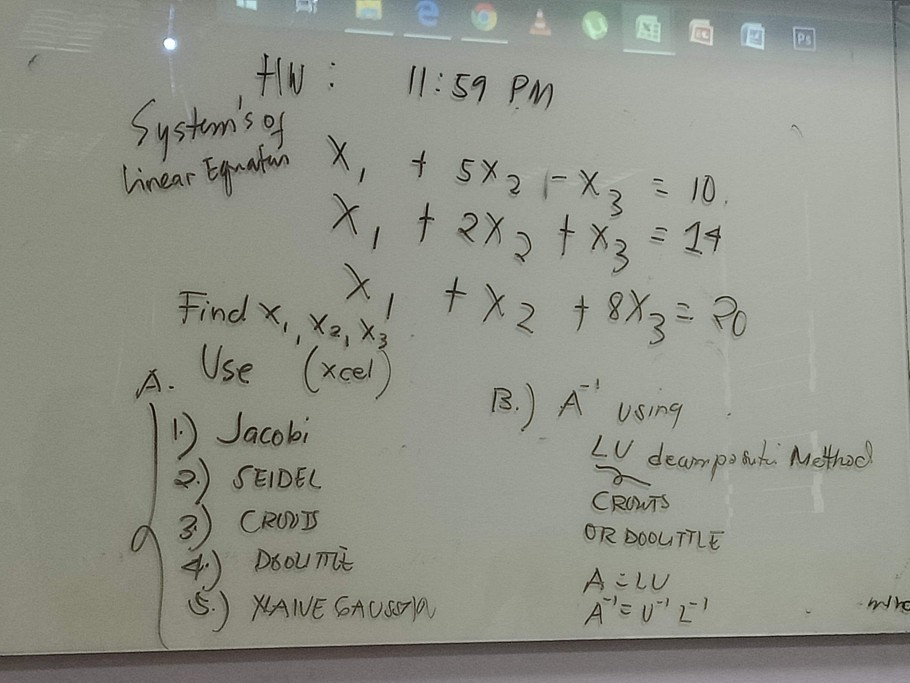 HW : 11:59 PM
System's of
Linear Equation
X₁ + 5X₂ - X₃ = 10.
X₁ + 2X₂ + X₃ = 14
X₁ + X₂ + 8X₃ = 20
Find x₁, x₂, x₃
Use (xcel)
A.
1.) Jacobi
2.) SEIDEL
3.) CROUTS
4.) DOOLITTLE
5.) NAIVE GAUSSIAN
B.) A⁻¹ using
LU decomposition Method
CROWTS
OR DOOLITTLE
A = LU
A⁻¹ = U⁻¹ L⁻¹
Ps